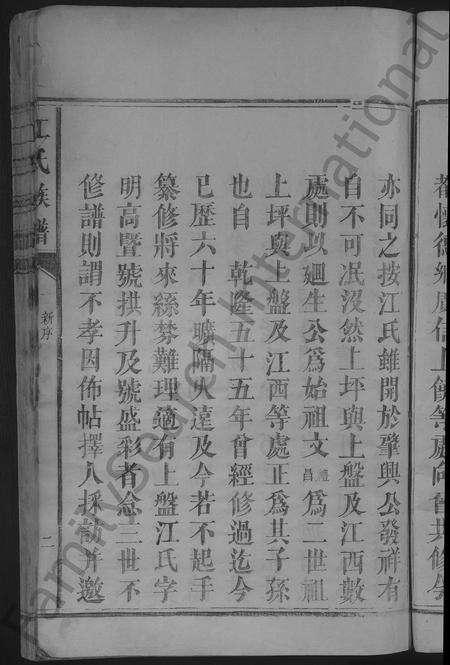 耆懷德
上饒等處向曾共修今
亦同之按江氏雖開於肇興公發祥有
自不可冺沒然上坪與上盤及江西數
處則以廻生公爲始祖文禮昌爲二世祖
上坪與上盤及江西等處正爲其子孫
也自 乾隆五十五年曾經修過迄今
已歷六十年曠隔久遠及今若不起手
纂修將來絲棼難理適有上盤江氏字
明高暨號拱升及號盛彩者念三世不
修譜則謂不孝因佈帖擇人採訪并邀
江氏族譜
新序
二
FamilySearch International